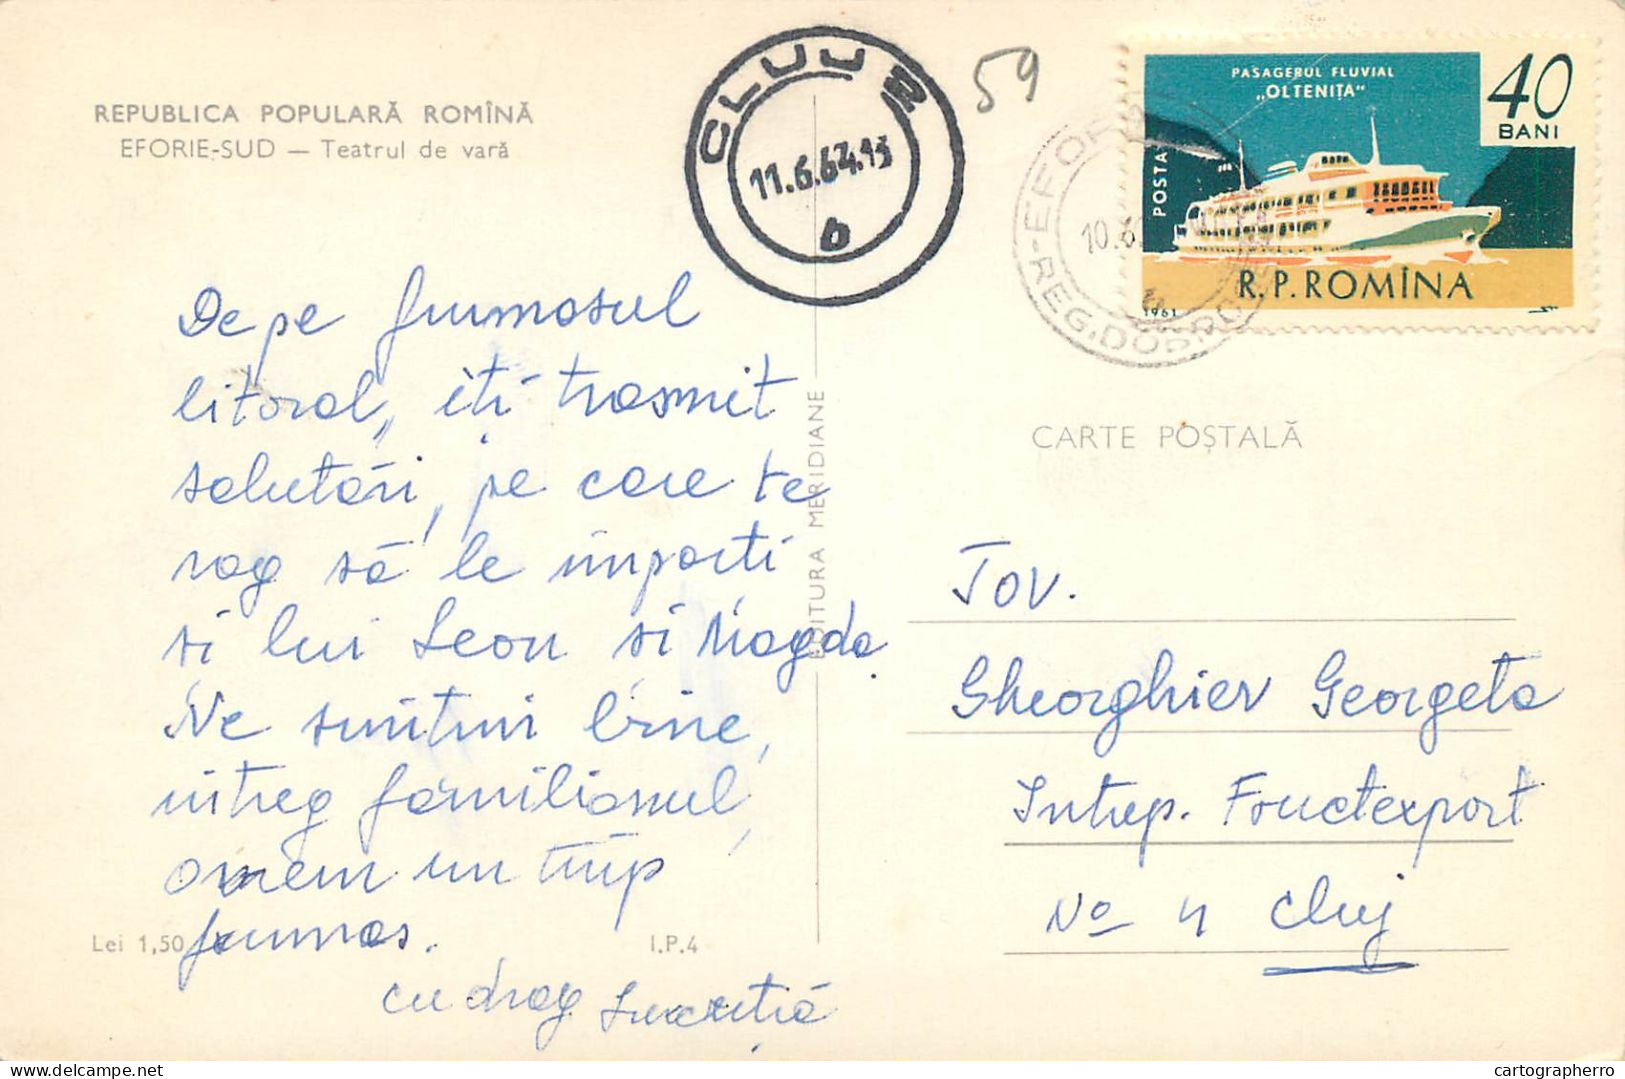 REPUBLICA POPULARĂ ROMÎNĂ
EFORIE-SUD — Teatrul de vară
CLUJ
11.6.64.13
b
59
EFORIE
10.6
REG. DOBROGEA
PASAGERUL FLUVIAL
„OLTENIȚA”
40
BANI
POSTA
R.P.ROMÎNA
1961
De pe frumosul
litoral, îți trasmit
salutări, pe care te
rog să le imparti
si lui Leon si Magda.
Ne simtim bine,
intreg familionul,
avem un timp
frumos.
cu drag Lucreția
Lei 1,50
I.P.4
EDITURA MERIDIANE
CARTE POȘTALĂ
Tov.
Gheorghiev Georgeta
Intrep. Fructexport
No 4 Cluj
cartographerro